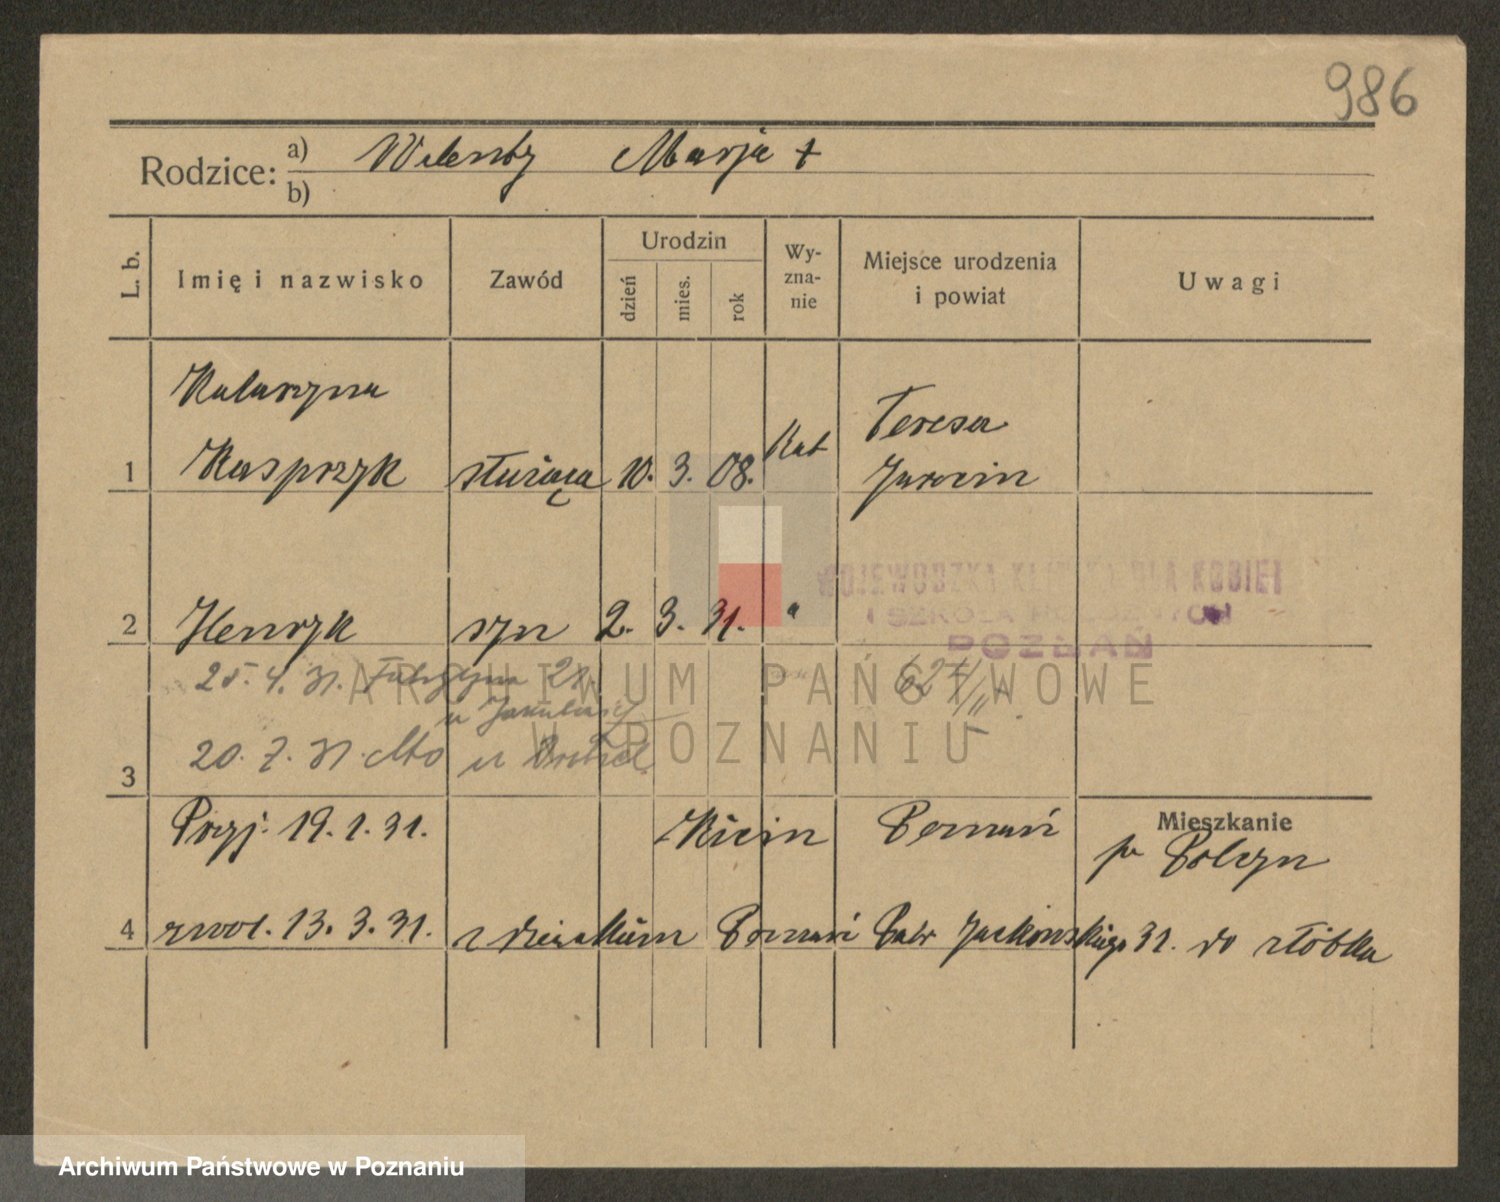 986
Rodzice: a) Walenty Marja +
b)
L. b. Imię i nazwisko Zawód Urodzin dzień mies. rok Wy-zna-nie Miejsce urodzenia i powiat Uwagi
Katarzyna
1 Kasprzyk służąca 10. 3. 08. Kat Teresa
Jarocin
WOJEWÓDZKA KLINIKA DLA KOBIET
I SZKOŁA POŁOŻNYCH
POZNAŃ
2 Henryk syn 2. 3. 31. "
25. 4. 31. 21
ARCHIWUM PAŃSTWOWE
W POZNANIU
3 20. 7. 31.
Przyj. 19. 1. 31. Kicin Poznań Mieszkanie
4 zwol. 13. 3. 31. z dzieckiem Poznań Patr Jackowskiego 31. do żłóbka
Archiwum Państwowe w Poznaniu